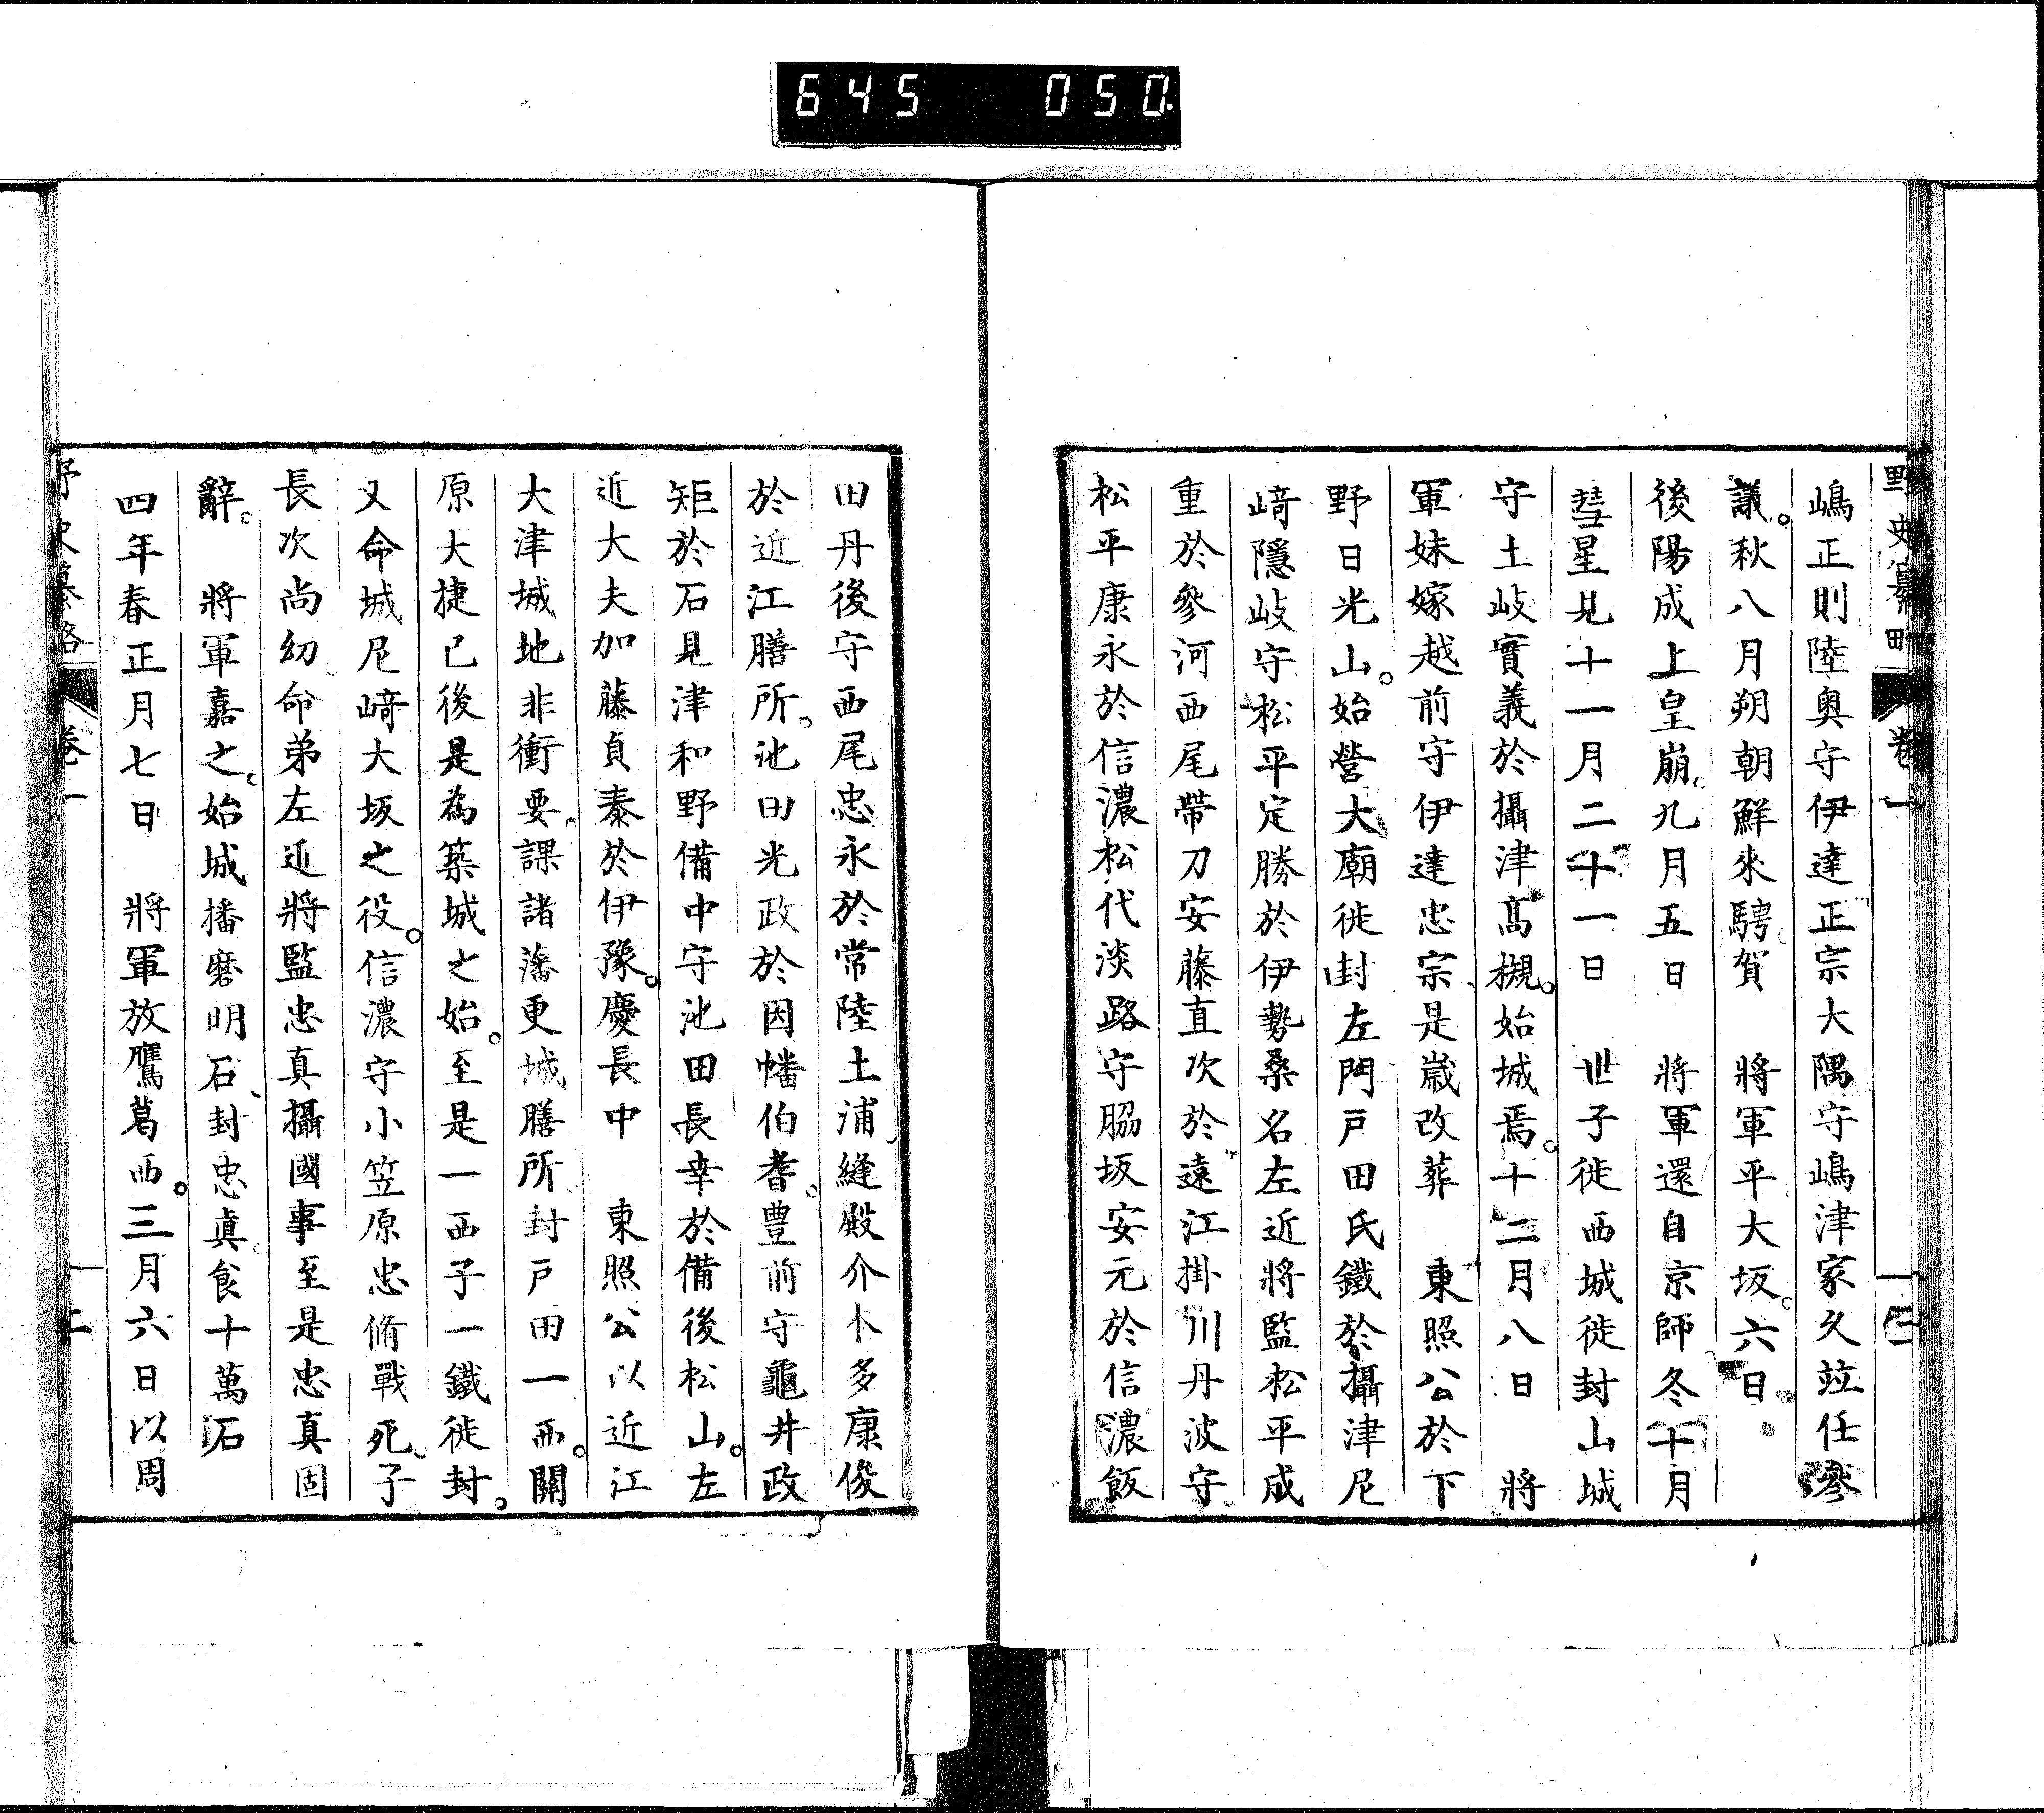 645 050
野史纂略 卷一 十四
嶋正則陸奥守伊達正宗大隅守嶋津家久竝任參
議。秋八月朔朝鮮來騁賀 將軍平大坂。六日
後陽成上皇崩。九月五日 將軍還自京師冬十月
彗星見十一月二十一日 世子徙西城徙封山城
守土岐實義於攝津髙槻。始城焉。十二月八日 將
軍妹嫁越前守伊達忠宗是歲改葬 東照公於下
野日光山。始營大廟徙封左門戸田氏鐵於攝津尼
﨑隱岐守松平定勝於伊勢桑名左近將監松平成
重於參河西尾帶刀安藤直次於遠江掛川丹波守
松平康永於信濃松代淡路守脇坂安元於信濃飯
田丹後守西尾忠永於常陸土浦、縫殿介卜多康俊
於近江膳所。池田光政於因幡伯耆。豊前守龜井政
矩於石見津和野備中守池田長幸於備後松山。左
近大夫加藤貞泰於伊豫。慶長中 東照公以近江
大津城地非衝要課諸藩更城膳所封戸田一西。關
原大捷已後是為築城之始。至是一西子一鐵徙封。
又命城尼﨑大坂之役。信濃守小笠原忠脩戰死、子
長次尚幼命弟左近將監忠真攝國事至是忠真固
辭。 將軍嘉之、始城播磨明石、封忠眞食十萬石
四年春正月七日 將軍放鷹葛西。三月六日以周
野史纂略 卷一